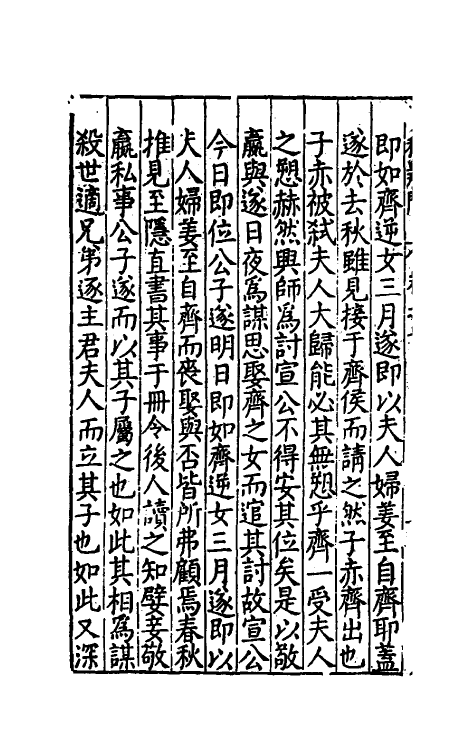 即如齊逆女三月遂即以夫人婦姜至自齊耶蓋
遂於去秋雖見接于齊侯而請之然子赤齊出也
子赤被弑夫人大歸能必其無愬乎齊一受夫人
之愬赫然興師爲討宣公不得安其位矣是以敬
嬴與遂日夜爲謀思娶齊之女而逭其討故宣公
今日即位公子遂明日即如齊逆女三月遂即以
夫人婦姜至自齊而喪娶與否皆所弗顧焉春秋
推見至隱直書其事于冊令後人讀之知嬖妾敬
嬴私事公子遂而以其子屬之也如此其相爲謀
殺世適兄弟逐主君夫人而立其子也如此又深